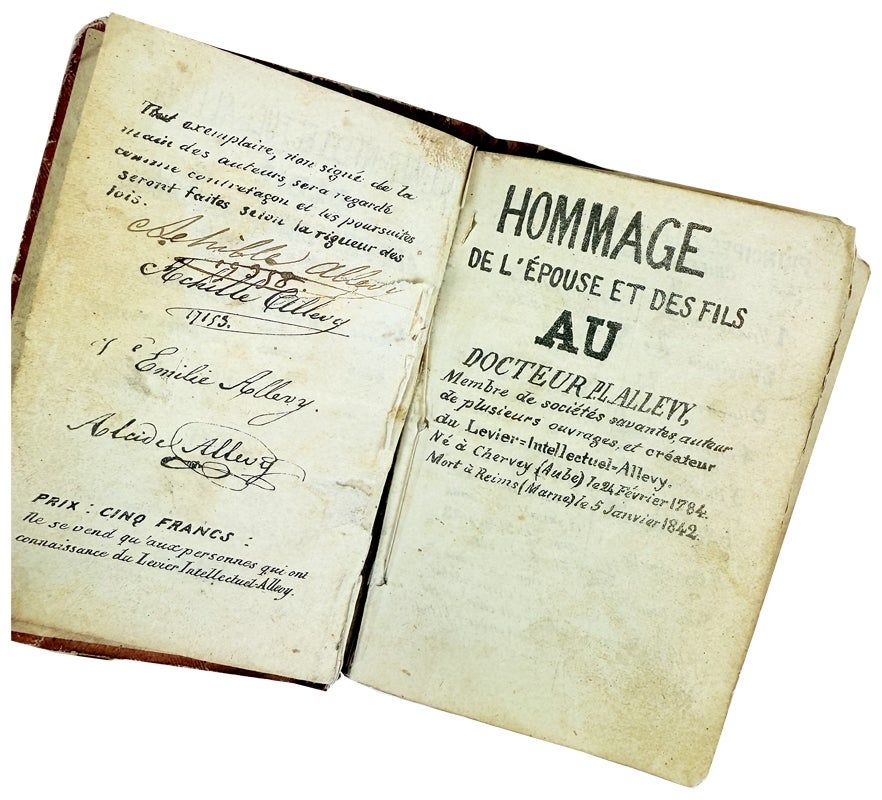 Tout exemplaire, non signé de la
main des auteurs, sera regardé
comme contrefaçon et les poursuites
seront faites selon la rigueur des
lois.
Achille Allevy
Achille Allevy
17153.
Emilie Allevy.
Alcide Allevy
PRIX : CINQ FRANCS :
Ne se vend qu'aux personnes qui ont
connaissance du Levier Intellectuel-Allevy.
HOMMAGE
DE L'ÉPOUSE ET DES FILS
AU
DOCTEUR P.L. ALLEVY,
Membre de sociétés savantes, auteur
de plusieurs ouvrages, et créateur
du Levier=Intellectuel=Allevy.
Né à Chervey (Aube) le 24 Février 1784.
Mort à Reims (Marne) le 5 Janvier 1842.